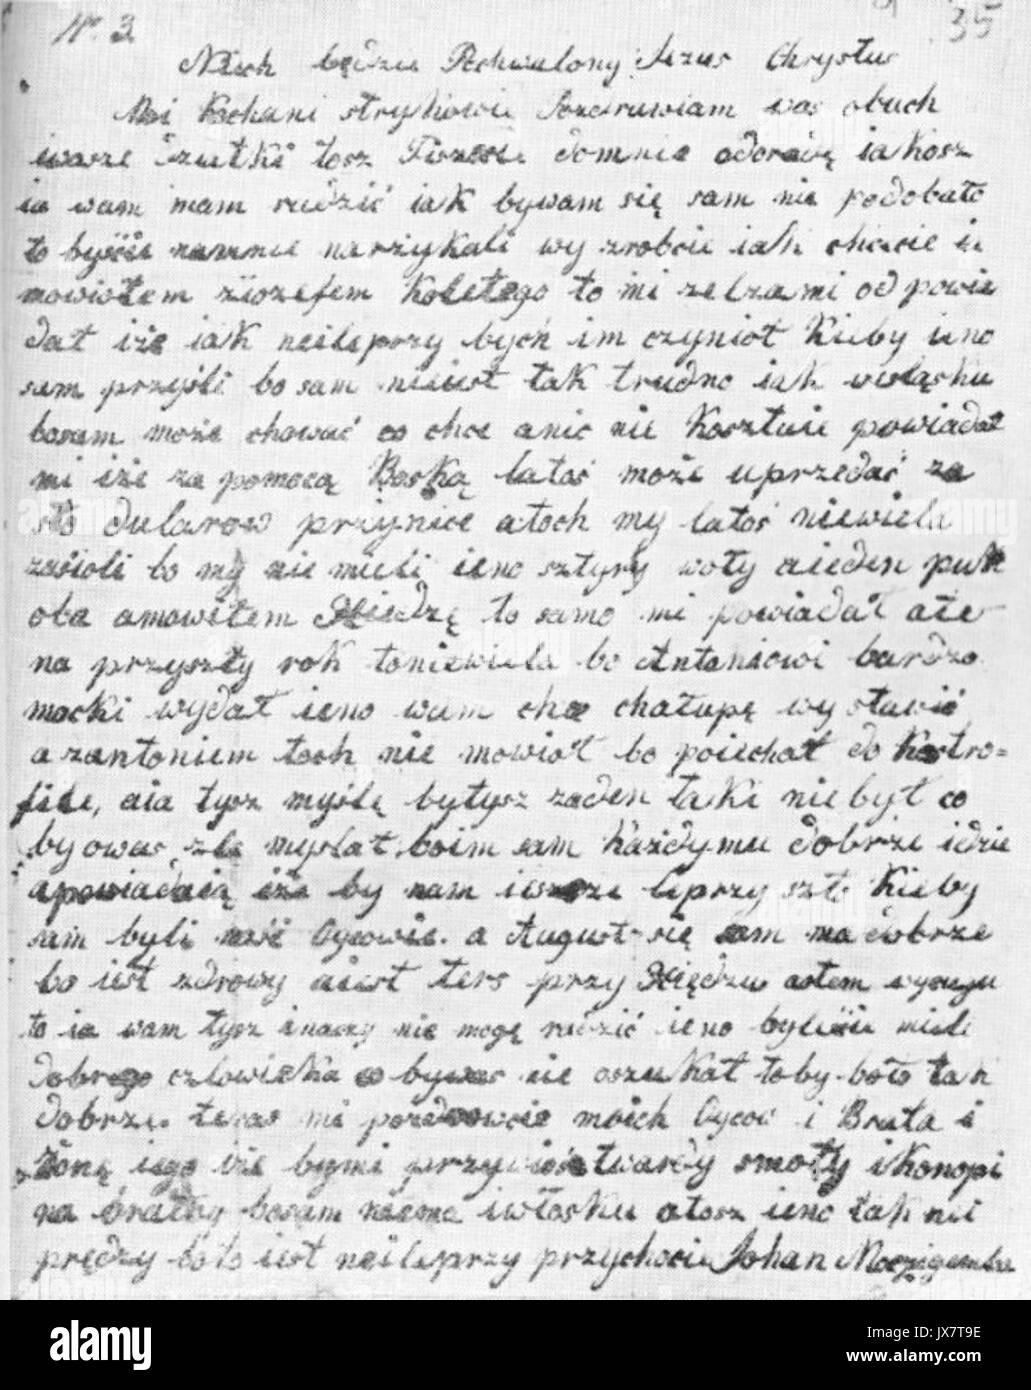 Nr. 3 35
Niech będzie Pochwalony Jezus Chrystus
Moi Kochani strykowie Pozdrawiam was obuch
iwasze Dziatki tosz Piszecie domnie odoradę iakosz
ia wam mam radzić iak bywam się sam nie podobało
to byście namnie narzykali wy zrobcie iak chcecie ia
mowiołem ziozefem Koletego to mi zelzami odpowie
dał iże iak neileprzy bych im czyniół Kieby ieno
sam przyśli bo sam nieiest tak trudno iak weśląsku
bosam może chować co chce anic nie Kosztuie powiadał
mi iże za pomocą Boską latoś może uprzedać za
sto dularow przynice atoch my latoś niewiela
zasioli bo my nie mieli ieno sztyry woły aieden puk
ola amowiłem Xiedzę to samo mi powiadał ale
na przyszły rok toniewiela bo Antoniowi bardzo
mocki wydał ieno wam chce chałupę wystawić
a zantoniem toch nie mowiół bo poiechał do Kastro=
file, aia tysz myślę byłysz żaden taki niebył co
byowas źle mysłał boim sam Każdymu dobrze idzie
apowiadaią iże by nam ieszcze leprzy szło Kieby
sam byli naśi Oycowie. a August się sam ma dobrze
bo iest zdrowy aiest ters przy Xiędzu
to ia wam tysz inaczy nie mogę radzić ieno byście mieli
dobrego człowieka co bywas nie oszukał toby boło tak
dobrze. teras mi pozdrowcie moich Oycow i Brata i
żonę iego iże bymi przywioś twardy smoły ikonopi
na dratwy bosam niema iwłosku atosz ieno tak nei
prędzy bo to iest neileprzy przychocie Johan Moczigemba
alamy
Image ID: JX7T9E
www.alamy.com